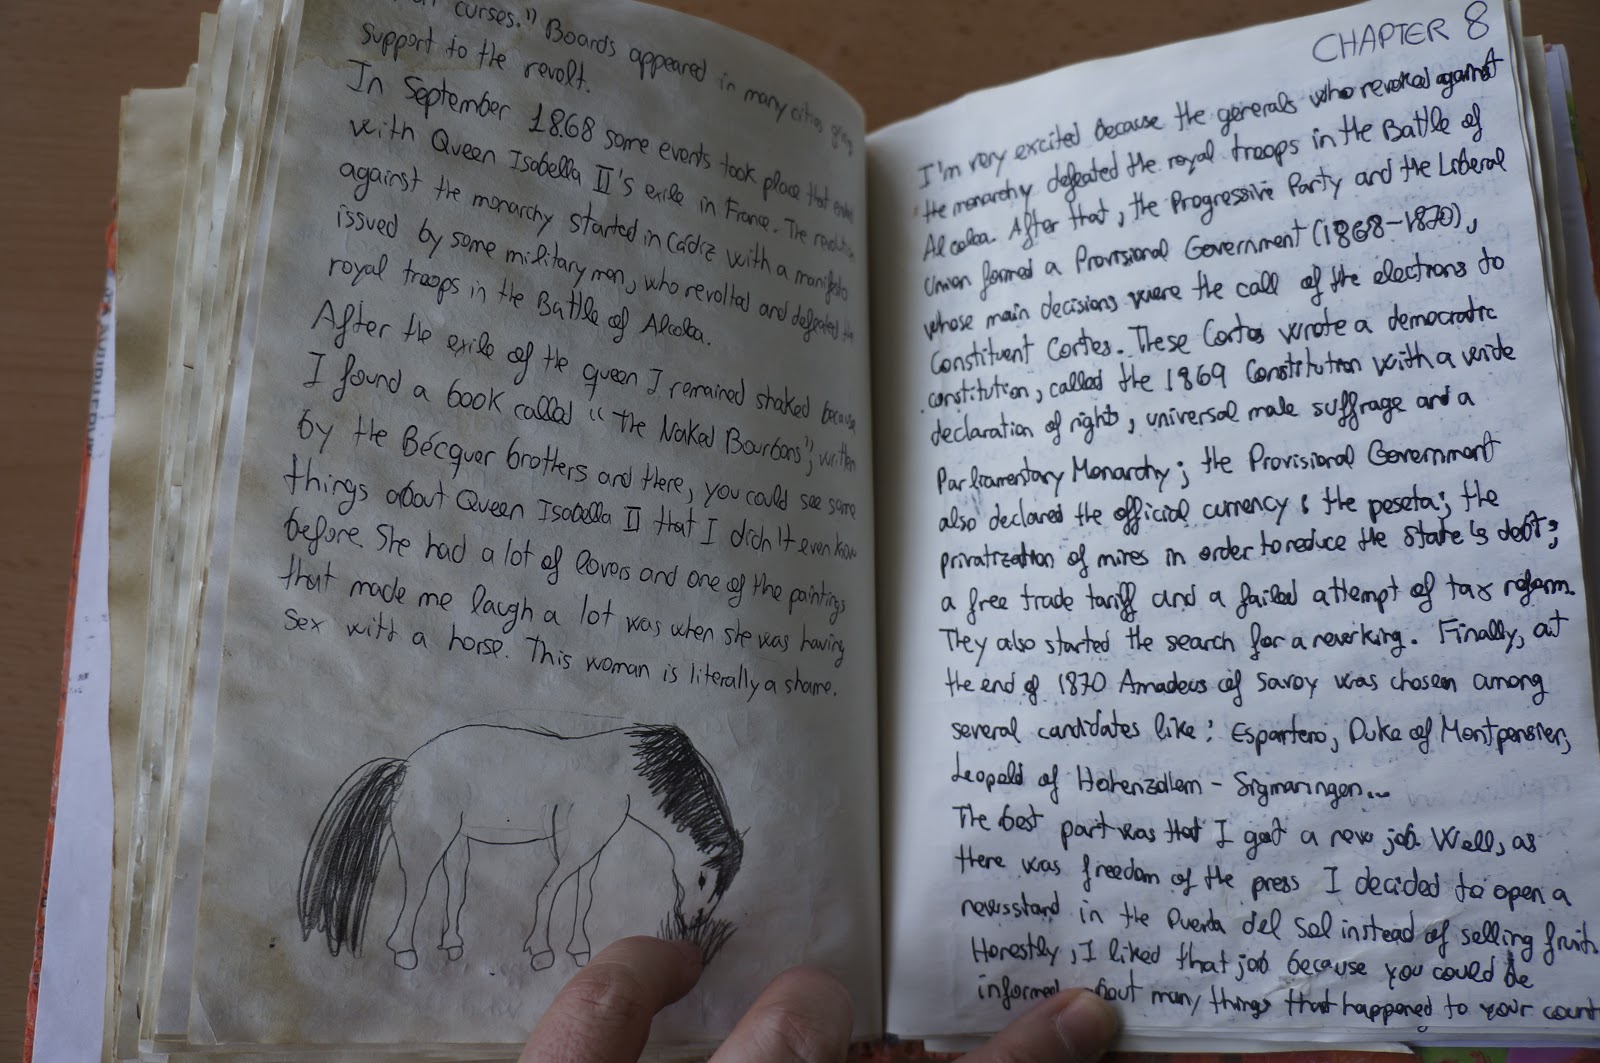 curses." Boards appeared in many cities giving
support to the revolt.
In September 1868 some events took place that ended
with Queen Isabella II's exile in France. The revolution
against the monarchy started in Cádiz with a manifesto
issued by some military men, who revolted and defeated the
royal troops in the Battle of Alcolea.
After the exile of the queen I remained shaked because
I found a book called "The Naked Bourbons", written
by the Bécquer brothers and there, you could see some
things about Queen Isabella II that I didn't even know
before. She had a lot of lovers and one of the paintings
that made me laugh a lot was when she was having
sex with a horse. This woman is literally a shame.
CHAPTER 8
I'm very excited because the generals who revoked against
the monarchy defeated the royal troops in the Battle of
Alcolea. After that, the Progressive Party and the Liberal
Union formed a Provisional Government (1868-1870),
whose main decisions were the call of the elections to
Constituent Cortes. These Cortes wrote a democratic
constitution, called the 1869 Constitution with a wide
declaration of rights, universal male suffrage and a
Parliamentary Monarchy; the Provisional Government
also declared the official currency: the peseta; the
privatization of mines in order to reduce the State's debt;
a free trade tariff and a failed attempt of tax reform.
They also started the search for a new king. Finally, at
the end of 1870 Amadeus of Savoy was chosen among
several candidates like: Espartero, Duke of Montpensier,
Leopold of Hohenzollern - Sigmaringen...
The best part was that I got a new job. Well, as
there was freedom of the press I decided to open a
newsstand in the Puerta del Sol instead of selling fruit.
Honestly, I liked that job because you could be
informed about many things that happened to your